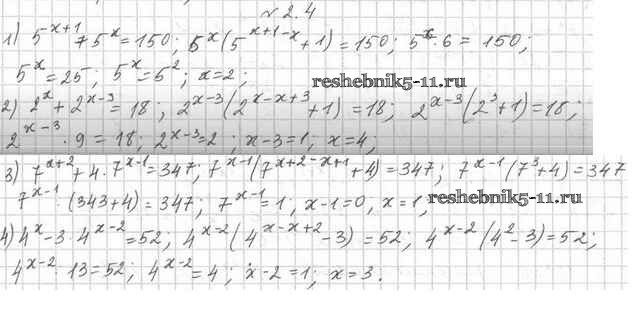 № 2.4
1) 5^{x+1} + 5^x = 150; 5^x(5^{x+1-x}+1) = 150; 5^x·6 = 150;
5^x = 25; 5^x = 5^2; x = 2;
reshebnik5-11.ru
2) 2^x + 2^{x-3} = 18; 2^{x-3}(2^{x-x+3}+1) = 18; 2^{x-3}(2^3+1) = 18;
2^{x-3}·9 = 18; 2^{x-3} = 2; x-3 = 1; x = 4;
3) 7^{x+2} + 4·7^{x-1} = 347; 7^{x-1}(7^{x+2-x+1}+4) = 347; 7^{x-1}(7^3+4) = 347
7^{x-1}·(343+4) = 347; 7^{x-1} = 1; x-1 = 0, x = 1,
reshebnik5-11.ru
4) 4^x - 3·4^{x-2} = 52; 4^{x-2}(4^{x-x+2}-3) = 52; 4^{x-2}(4^2-3) = 52;
4^{x-2}·13 = 52; 4^{x-2} = 4; x-2 = 1; x = 3.